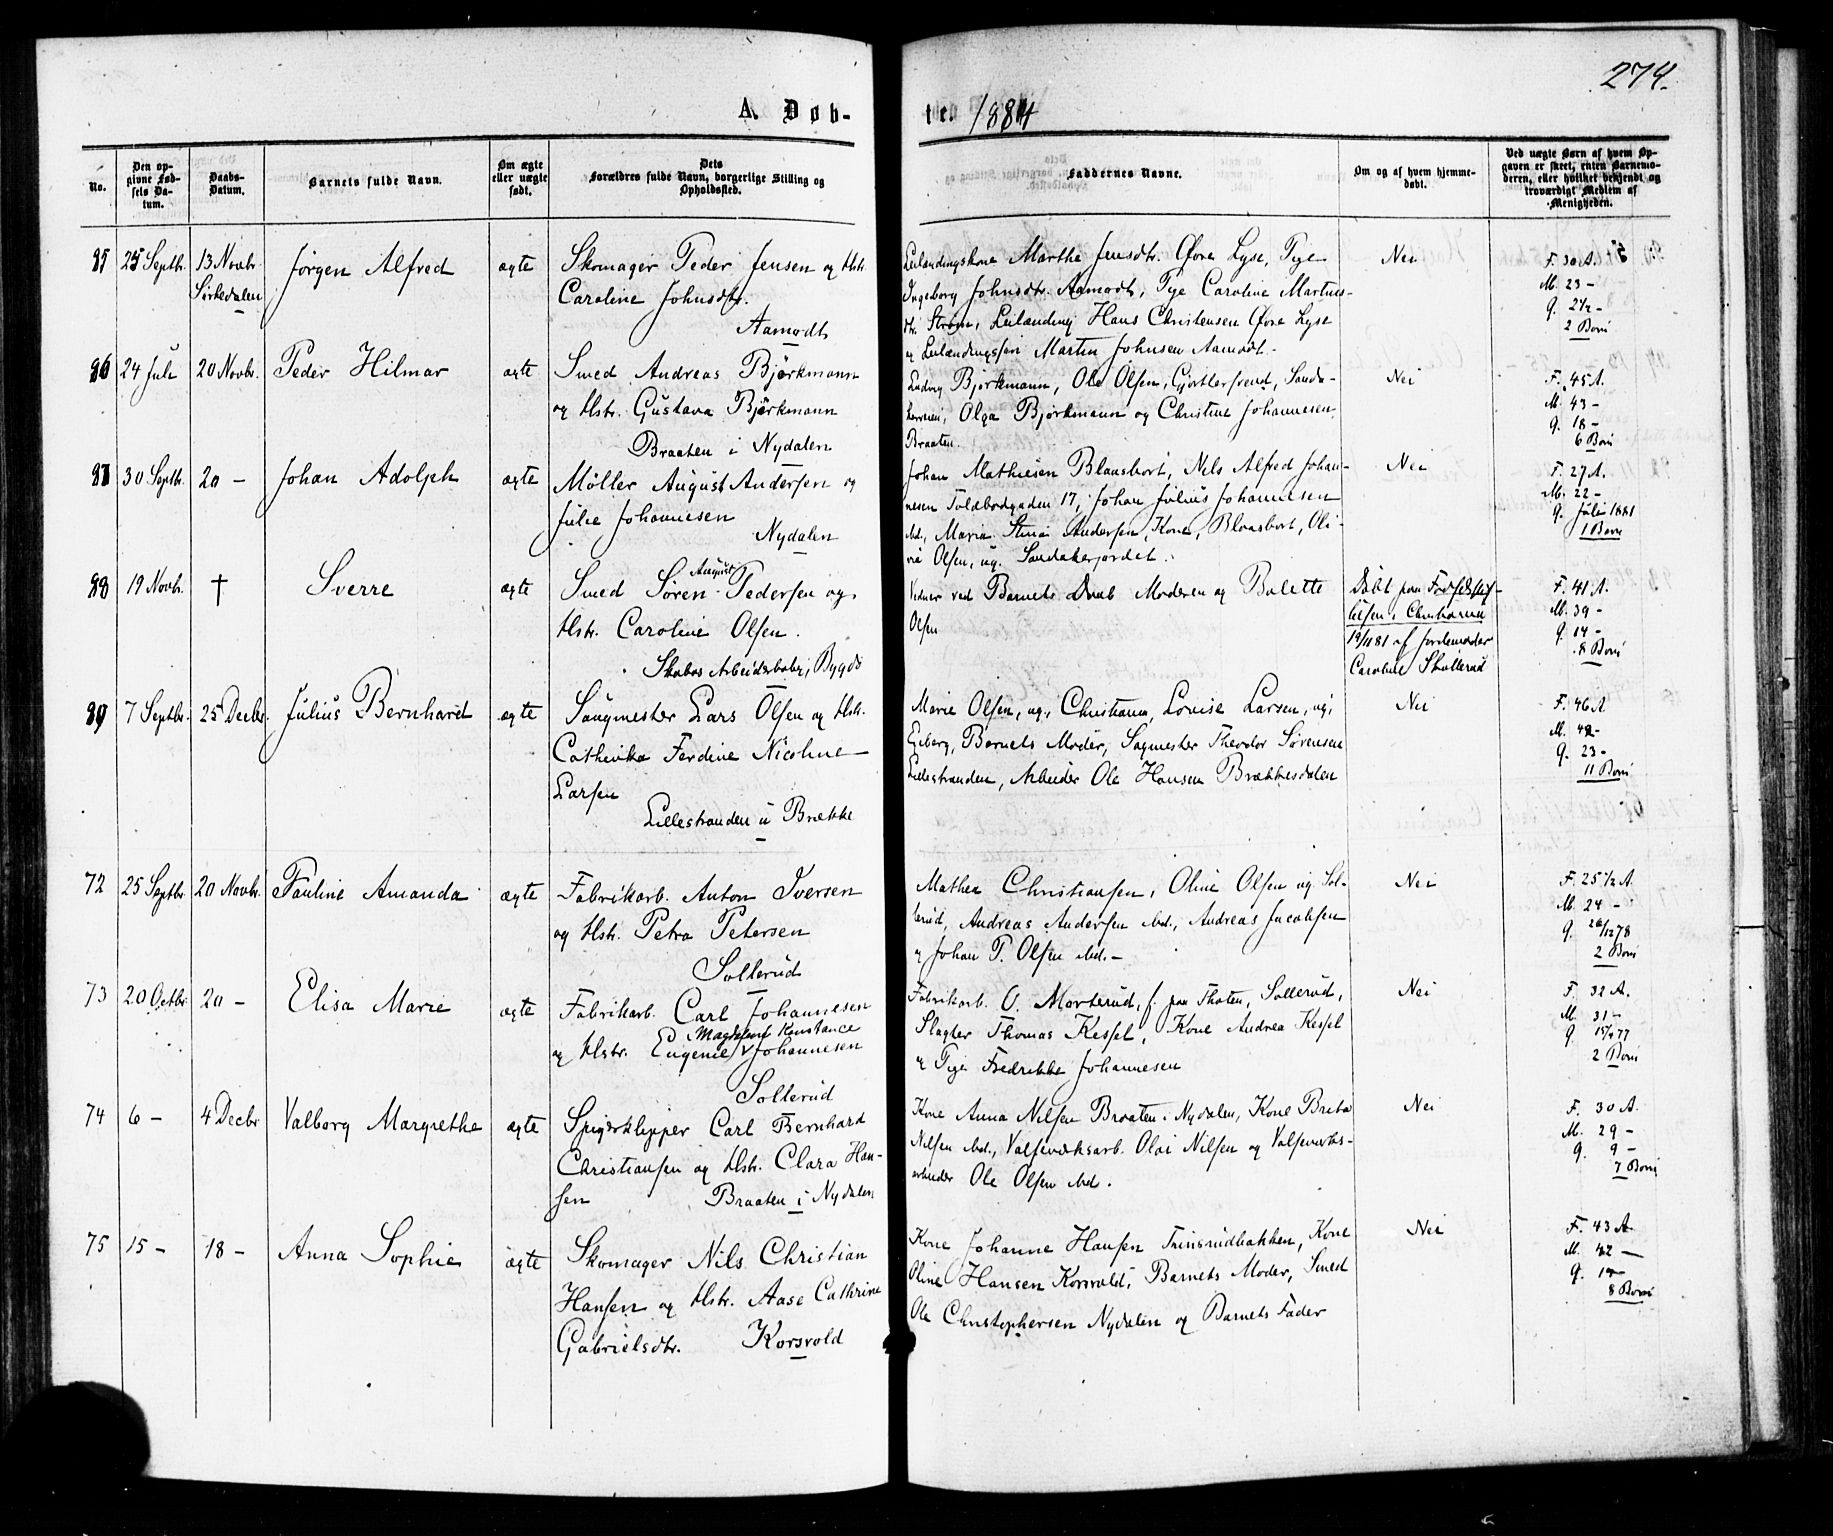 274.
A. Døb-
te. 1881
No.
Den op-
givne Fød-
sels Da-
tum.
Daabs-
Datum.
Barnets fulde Navn.
Om ægte
eller uægte
født.
Dets
Forældres fulde Navn, borgerlige Stilling og
Opholdssted.
Faddernes Navne.
Om og af hvem hjemme-
døbt.
Ved uægte Børn af hvem Op-
gaven er skeet, enten Barnemo-
deren, eller hvilket bekjendt og
troværdigt Medlem af
Menigheden.
85 25 Septbr. 13 Novbr.
Sörkedalen
Jörgen Alfred
ægte
Skomager Peder Jensen og Hstr.
Caroline Johnsdtr.
Aamodt
Leilændingskone Marthe Jensdtr. Øvre Lyse, Pige
Ingeborg Johnsdtr. Aamodt, Pige Caroline Martins-
dtr. Strøm, Leilænding Hans Christensen Øvre Lyse
og Leilændingssøn Martin Johnsen Aamodt.
Nei
F. 30 A.
M. 23 -
g. 2½ -
2 Børn
86 24 Juli 20 Novbr.
Peder Hilmar
ægte
Smed Andreas Bjørkmann
og Hstr. Gustava Bjørkmann
Braaten i Nydalen
Ludvig Bjørkmann, Ole Olsen, Gjørtlersvend, Sanda-
kerveien, Olga Bjørkmann og Christine Johannesen,
Braaten.
Nei
F. 45 A.
M. 43 -
g. 18 -
6 Børn
87 30 Septbr. 20 -
Johan Adolph
ægte
Møller August Andersen og
Julie Johannesen
Nydalen
Johan Mathiesen Blaasbort, Nils Alfred Johan-
nesen Toldbodgaden 17, Johan Julius Johannesen
ibd., Maria Stina Andersen, Kone, Blaasbort, Oli-
via Olsen, ug. Sandakerjordet.
Nei
F. 27 A.
M. 22 -
g. Juli 1881
1 Barn
88 19 Novbr. †
Sverre
ægte
Smed Sören August Pedersen og
Hstr. Caroline Olsen.
Skabos Arbeiderbolig, Bygdö
Vidner ved Barnets Daab Moderen og Bolette
Olsen
Döbt paa Fødselsstif-
telsen i Christiania
19/11 81 af Jordemoder
Caroline Skollerud
F. 41 A.
M. 39 -
g. 14 -
8 Børn
89 7 Septbr. 25 Decbr.
Julius Bernhard
ægte
Saugmester Lars Olsen og Hstr.
Cathinka Ferdine Nicoline
Larsen
Lillestranden u Brække
Marie Olsen, ug., Christiania, Lovise Larsen, ug.,
Egberg, Barnets Moder, Sagmester Theodor Sørensen
Lillestranden, Arbeider Ole Hansen Brækkesdalen
Nei
F. 46 A
M. 42 -
g. 23 -
11 Børn
72 25 Septbr. 20 Novbr.
Pauline Amanda
ægte
Fabrikarb. Anton Iversen
og Hstr. Petra Petersen
Sollerud
Mathea Christiansen, Oline Olsen ug. Sol-
lerud, Andreas Andersen ibd., Andreas Jacobsen
og Johan P. Olsen ibd. -
Nei
F. 25½ A.
M. 24 -
g. 26/12 78
2 Børn
73 20 Octbr. 20 -
Elisa Marie
ægte
Fabrikarb. Carl Johannesen
og Hstr. Eugenie Magdalene Konstance Johannesen
Sollerud
Fabrikarb. O. Morterud, f. paa Thoten, Sollerud,
Slagter Thomas Kessel, Kone Andrea Kessel
og Pige Fredrikke Johannesen
Nei
F. 32 A.
M. 31 -
g. 15/4 77
2 Børn
74 6 - 4 Decbr
Valborg Margrethe
ægte
Spigerklipper Carl Bernhard
Christiansen og Hstr. Clara Han-
sen Braaten i Nydalen
Kone Anna Nilsen Braaten i Nydalen, Kone Brita
Nilsen ibd., Valseværksarb. Olai Nilsen og Valseværks-
arbeider Ole Olsen ibd.
Nei
F. 30 A.
M. 29 -
g. 9 -
7 Børn
75 15 - 18 -
Anna Sophie
ægte
Skomager Nils Christian
Hansen og Hstr. Aase Cathrine
Gabrielsdtr. Korsvold
Kone Johanne Hansen Trinsrudbakken, Kone
Oline Hansen Korsvold, Barnets Moder, Smed
Ole Christophersen Nydalen og Barnets Fader
Nei
F. 43 A.
M. 42 -
g.
8 Børn